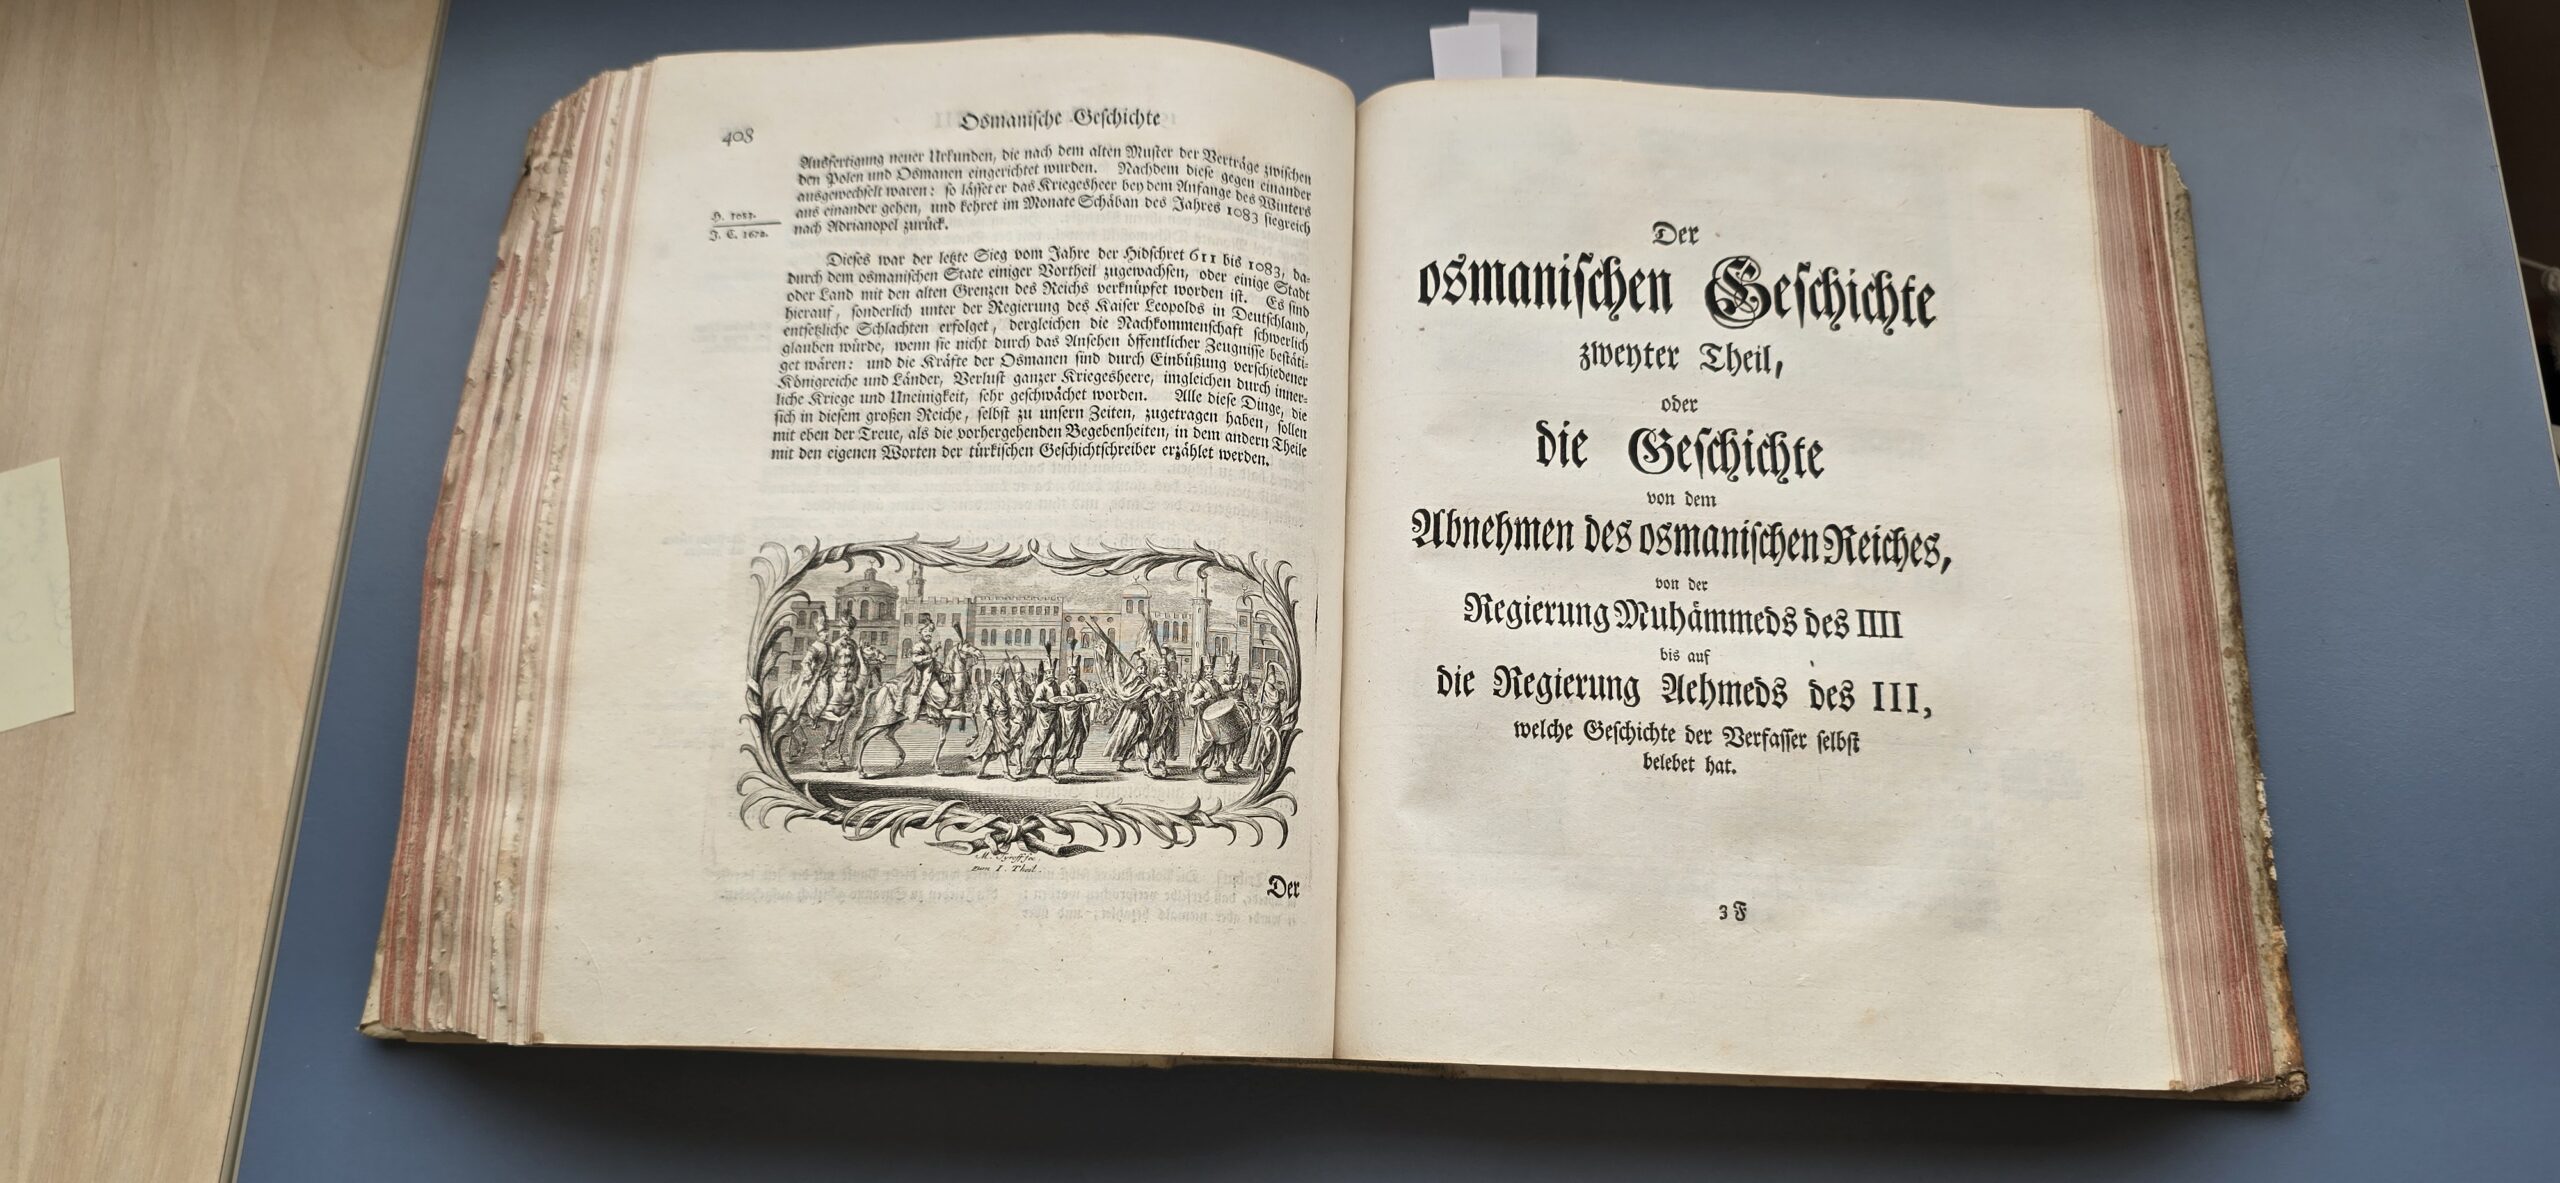 408
Osmanische Geschichte
Ausfertigung neuer Urkunden, die nach dem alten Muster der Verträge zwischen
den Polen und Osmanen eingerichtet wurden. Nachdem diese gegen einander
ausgewechselt waren: so lässet er das Kriegesheer bey dem Anfange des Winters
aus einander gehen, und kehret im Monate Schâban des Jahres 1083 siegreich
nach Adrianopel zurück.
H. 1083.
J. C. 1672.
Dieses war der letzte Sieg vom Jahre der Hidschret 611 bis 1083, da-
durch dem osmanischen State einiger Vortheil zugewachsen, oder einige Stadt
oder Land mit den alten Grenzen des Reichs verknüpfet worden ist. Es sind
hierauf, sonderlich unter der Regierung des Kaiser Leopolds in Deutschland,
entsetzliche Schlachten erfolget, dergleichen die Nachkommenschaft schwerlich
glauben würde, wenn sie nicht durch das Ansehen öffentlicher Zeugnisse bestäti-
get wären: und die Kräfte der Osmanen sind durch Einbüßung verschiedener
Königreiche und Länder, Verlust ganzer Kriegesheere, imgleichen durch inner-
liche Kriege und Uneinigkeit, sehr geschwächet worden. Alle diese Dinge, die
sich in diesem großen Reiche, selbst zu unsern Zeiten, zugetragen haben, sollen
mit eben der Treue, als die vorhergehenden Begebenheiten, in dem andern Theile
mit den eigenen Worten der türkischen Geschichtschreiber erzählet werden.
zum I. Theil.
Der
Der
osmanischen Geschichte
zweyter Theil,
oder
die Geschichte
von dem
Abnehmen des osmanischen Reiches,
von der
Regierung Muhämmeds des IIII
bis auf
die Regierung Aehmeds des III,
welche Geschichte der Verfasser selbst
belebet hat.
3 F